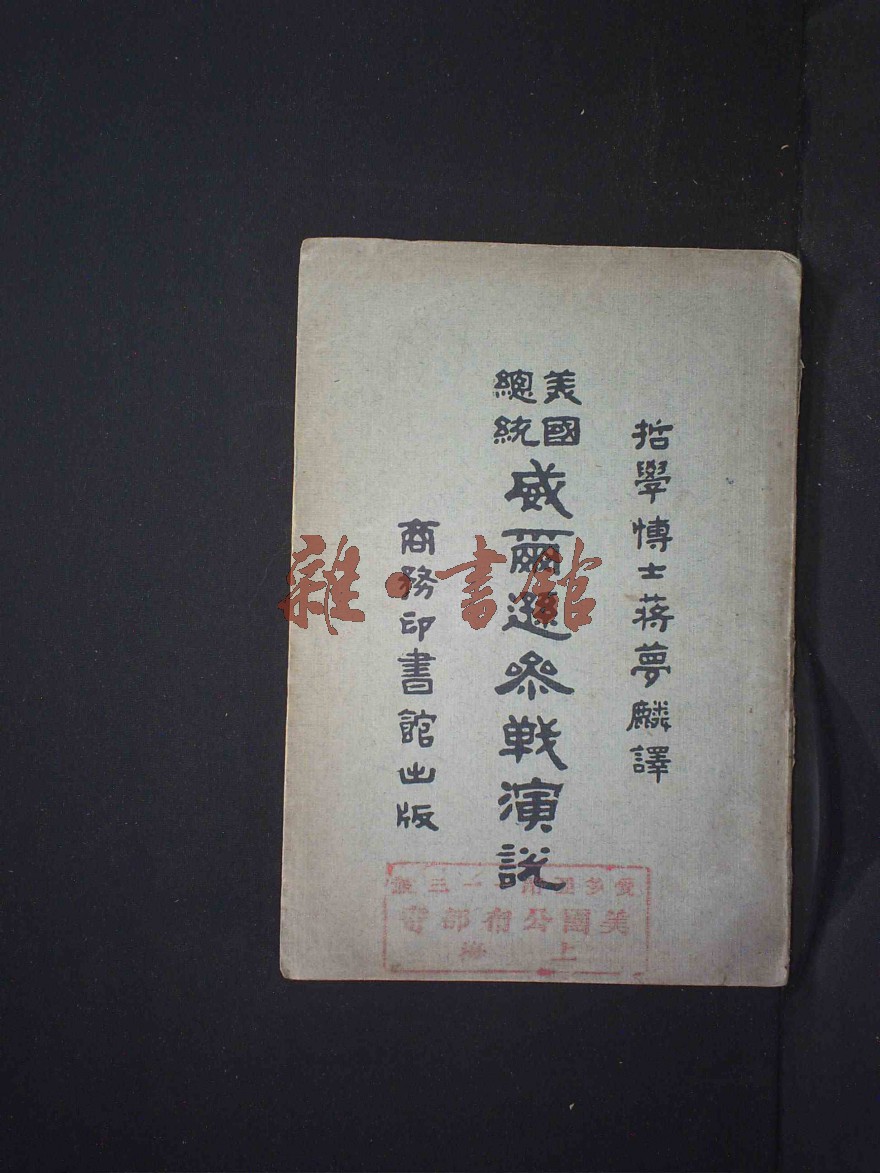 哲學博士蔣夢麟譯
美國總統威爾遜參戰演說
商務印書館出版
一三號
美國公布部寄
上海
雜·書館